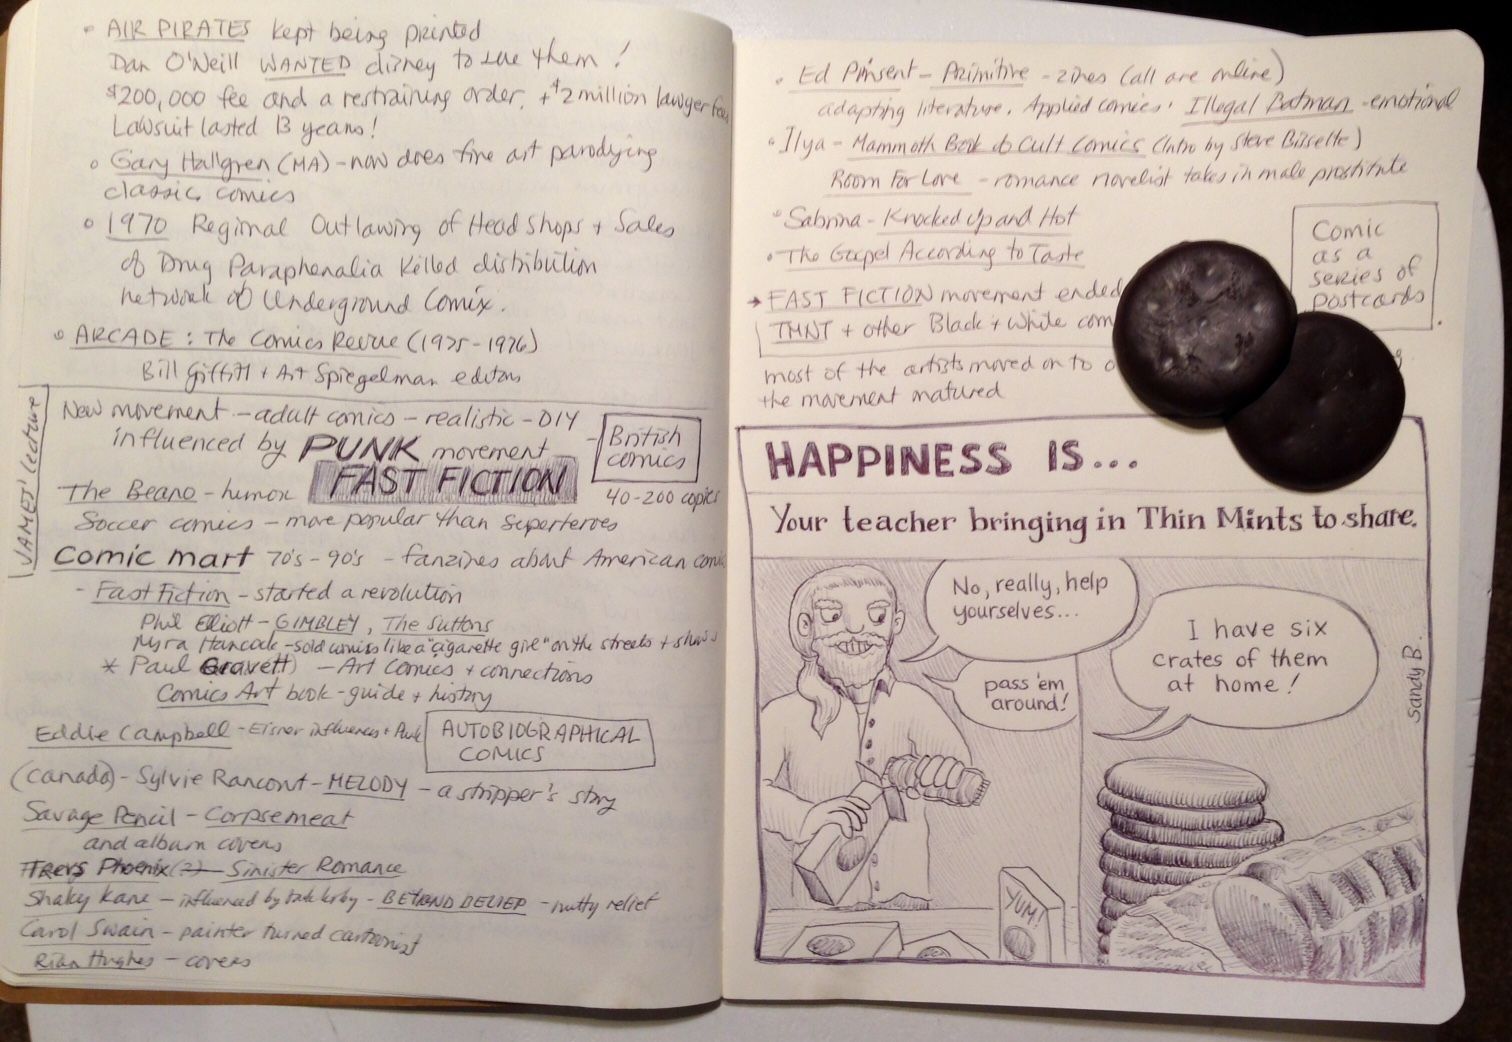 • AIR PIRATES kept being printed
Dan O'Neill WANTED disney to sue them!
$200,000 fee and a restraining order, + $2 million lawyer fees
Lawsuit lasted 13 years!
• Gary Hallgren (MA) - now does fine art parodying
classic comics
• 1970 Regional Outlawing of Head Shops + Sales
of Drug Paraphenalia Killed distribution
network of Underground Comix.
• ARCADE: The Comics Revue (1975-1976)
Bill Griffith + Art Spiegelman editors
JAMES' Lecture
New movement - adult comics - realistic - DIY
influenced by PUNK movement
British
comics
FAST FICTION
The Beano - humor
40-200 copies
Soccer comics - more popular than superheroes
Comic mart 70's - 90's - fanzines about American comics
- Fast Fiction - started a revolution
Phil Elliott - GIMBLEY, The Suttons
Myra Hancock - sold comics like a "cigarette girl" on the streets + shows
* Paul Gravett) - Art Comics + connections
Comics Art book - guide + history
Eddie Campbell - Eisner influences +
AUTOBIOGRAPHICAL
COMICS
(Canada) - Sylvie Rancourt - MELODY - a stripper's story
Savage Pencil - Corpsemeat
and album covers
Trevs Phoenix (2) - Sinister Romance
Shaky Kane - influenced by Jack Kirby - BEYOND BELIEF - nutty relief
Carol Swain - painter turned cartoonist
Rian Hughes - covers
• Ed Pinsent - Primitive - zines (all are online)
adapting literature. Applied comics. Illegal Batman - emotional
• Ilya - Mammoth Book of Cult Comics (Intro by Steve Bissette)
Room For Love - romance novelist takes in male prostitute
• Sabrina - Knocked Up and Hot
• The Gospel According to Taste
Comic
as a
series of
postcards
→ FAST FICTION movement ended
TMNT + other Black + White com
most of the artists moved on to
the movement matured
HAPPINESS IS...
Your teacher bringing in Thin Mints to share.
No, really, help
yourselves...
pass 'em
around!
I have six
crates of them
at home!
Sandy B.
YUM!